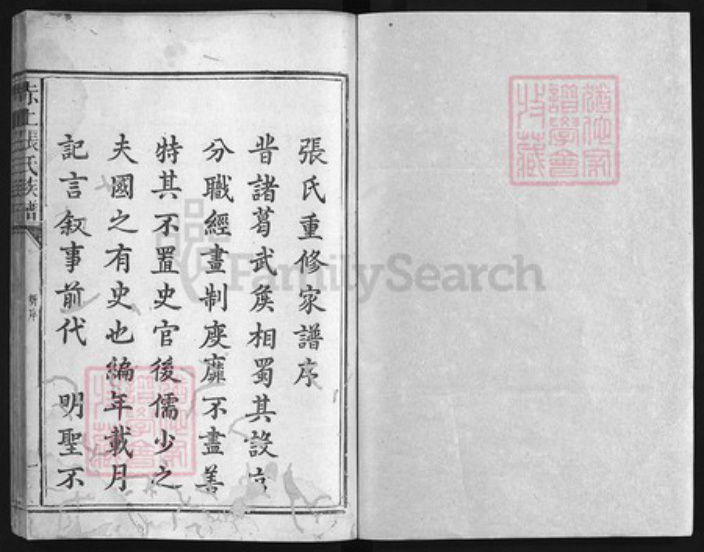 張氏重修家譜序
昔諸葛武矦相蜀其設官
分職經畫制度靡不盡善
特其不置史官後儒少之
夫國之有史也編年載月
記言叙事前代 明聖不
張氏族譜
新序
一
譜學會
收藏
FamilySearch